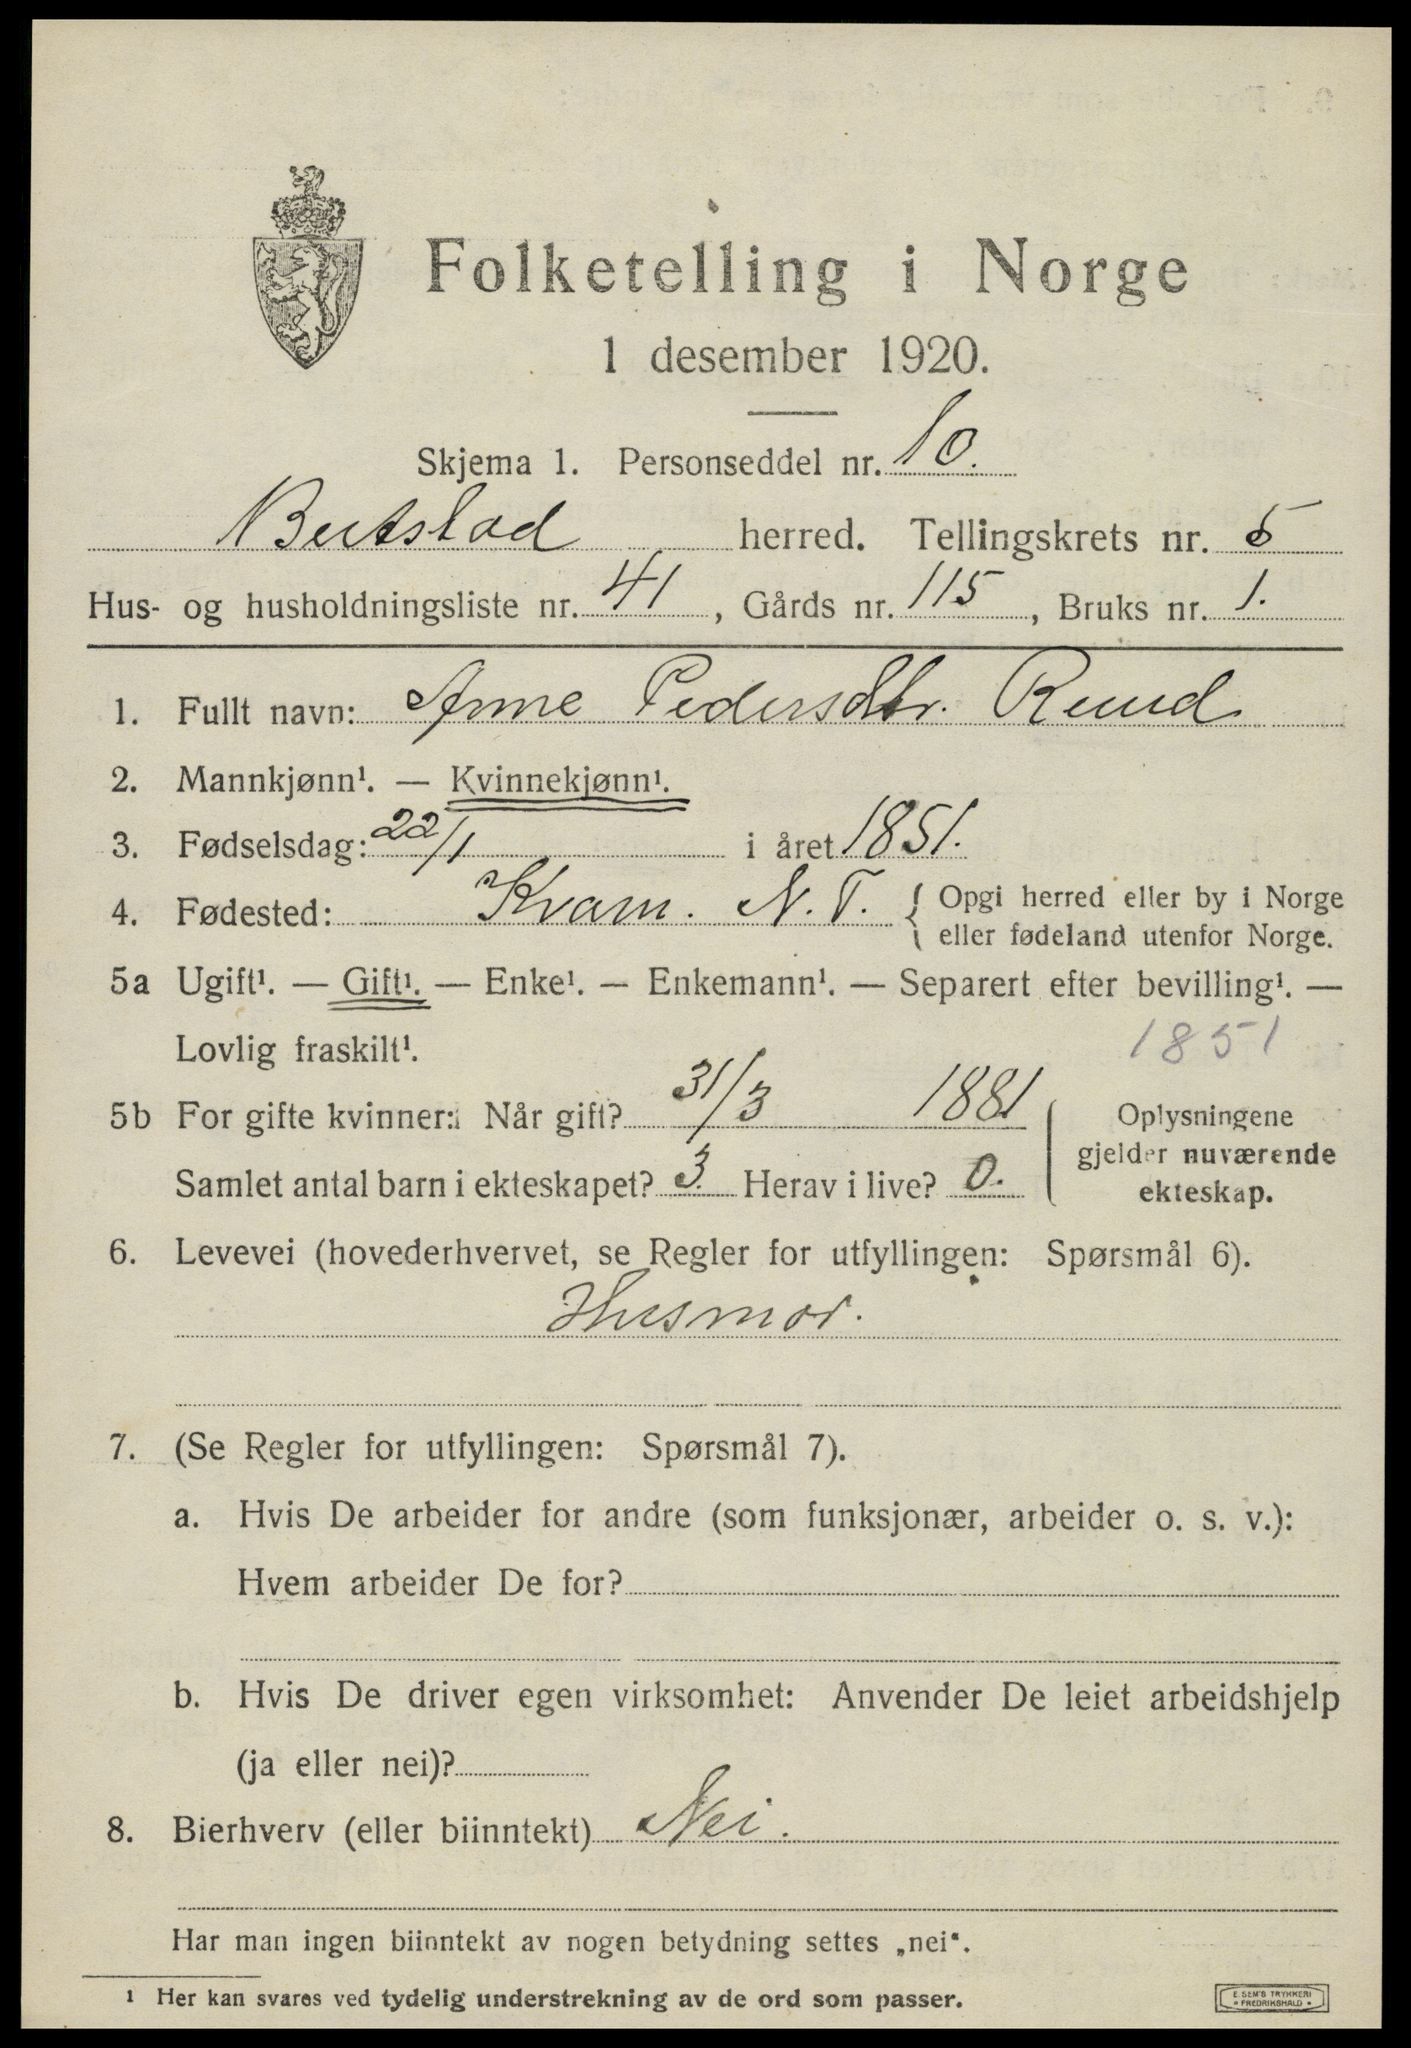 Folketelling i Norge
1 desember 1920.
Skjema 1. Personseddel nr. 10.
Beitstad herred. Tellingskrets nr. 5
Hus- og husholdningsliste nr. 41, Gårds nr. 115, Bruks nr. 1.
1. Fullt navn: Anne Pedersdtr. Ruud
2. Mannkjønn¹. — Kvinnekjønn¹.
3. Fødselsdag: 22/1 i året 1851.
4. Fødested: Kvam. N. T. { Opgi herred eller by i Norge
eller fødeland utenfor Norge.
5a Ugift¹. — Gift¹. — Enke¹. — Enkemann¹. — Separert efter bevilling¹. —
Lovlig fraskilt¹. 1851
5b For gifte kvinner: Når gift? 31/3 1881
Samlet antal barn i ekteskapet? 3. Herav i live? 0.
Oplysningene
gjelder nuværende
ekteskap.
6. Levevei (hovederhvervet, se Regler for utfyllingen: Spørsmål 6).
Husmor.
7. (Se Regler for utfyllingen: Spørsmål 7).
a. Hvis De arbeider for andre (som funksjonær, arbeider o. s. v.):
Hvem arbeider De for?
b. Hvis De driver egen virksomhet: Anvender De leiet arbeidshjelp
(ja eller nei)?
8. Bierhverv (eller biinntekt) Nei.
Har man ingen biinntekt av nogen betydning settes „nei“.
1 Her kan svares ved tydelig understrekning av de ord som passer.
E. SEM'S TRYKKERI
FREDRIKSHALD